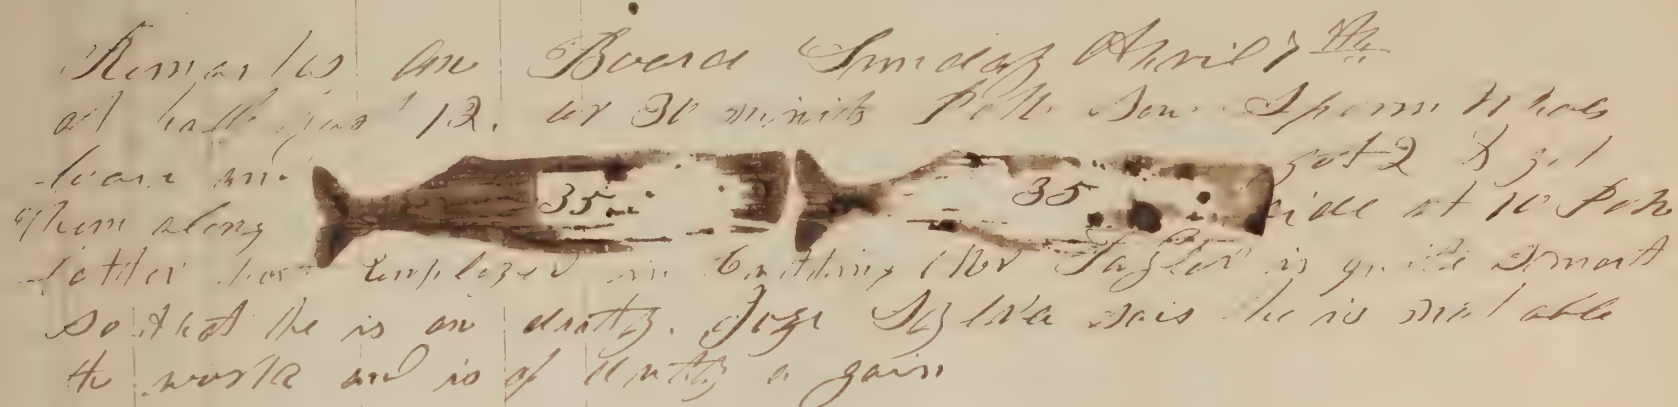 Remarks on Board Sunday April 7th
at half past 12. or 30 minits P M. Saw Sperm Whales
35 35 got 2 & got
them along side at 10 P M
latter part Employed in Cutting Mr Taylor is quite Smart
so that he is on duty. Joze Sylva sais he is not able
to work and is of duty a gain